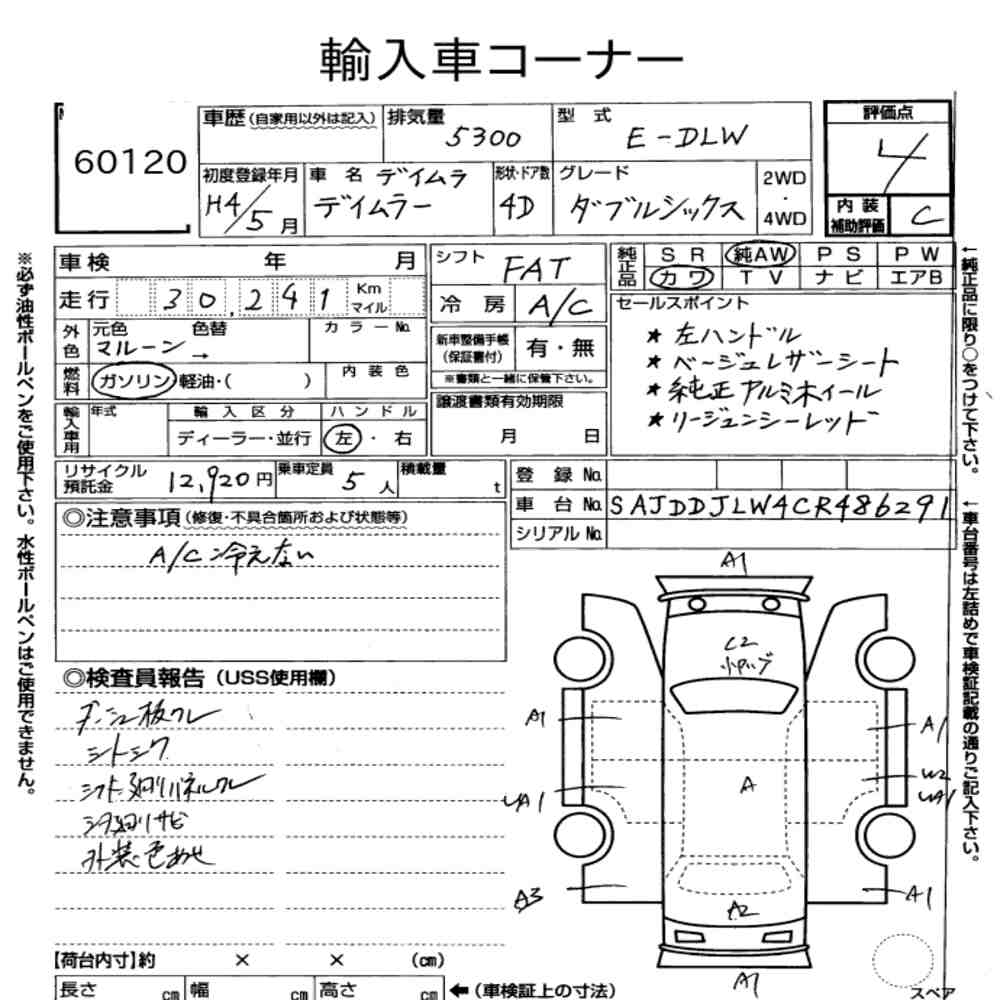 輸入車コーナー
60120
車歴(自家用以外は記入)
排気量 5300
型式 E-DLW
評価点 4
初度登録年月 H4/5月
車名 デイムラ
デイムラー
形状・ドア数 4D
グレード ダブルシックス
2WD
・
4WD
内装
補助評価 C
車検 年 月
走行 30,241 Km
マイル
外色 元色 色替 カラーNo.
マルーン →
燃料 ガソリン・軽油・( ) 内装色
輸入車用 年式 輸入区分 ハンドル
ディーラー・並行 左・右
シフト FAT
冷房 A/C
新車整備手帳
(保証書付) 有・無
※書類と一緒に保管下さい。
譲渡書類有効期限
月 日
純正品 SR 純AW PS PW
カワ TV ナビ エアB
セールスポイント
★左ハンドル
★ベージュレザーシート
★純正アルミホイール
★リージェンシーレッド
リサイクル
預託金 12,920円
乗車定員 5人
積載量 t
登録No.
車台No. SAJDDJLW4CR486291
シリアルNo.
◎注意事項(修復・不具合箇所および状態等)
A/C冷えない
◎検査員報告(USS使用欄)
シートシワ
外装色あせ
A1
C2
A1
A1
A
W2
A3
A1
A2
A1
スペア
【荷台内寸】約 × × (cm)
長さ cm 幅 cm 高さ cm ←(車検証上の寸法)
※必ず油性ボールペンをご使用下さい。水性ボールペンはご使用できません。
←純正品に限り○をつけて下さい。
←車台番号は左詰めで車検証記載の通りご記入下さい。